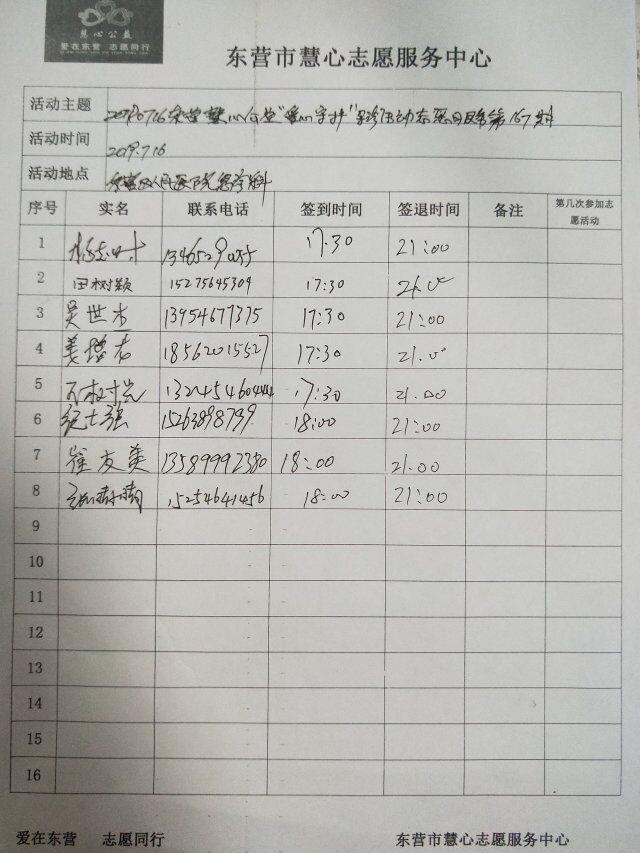 慧心公益
爱在东营 志愿同行
东营市慧心志愿服务中心
活动主题 20190716东营慧心公益"爱心守护"急诊活动志愿服务第167期
活动时间 2019.7.16
活动地点 东营区人民医院急诊科
序号 实名 联系电话 签到时间 签退时间 备注 第几次参加志
愿活动
1 17.30 21:00
2 田树颖 15275645309 17:30 21.00
3 吴世杰 13954677375 17:30 21:00
4 18562015527 17:30 21.00
5 17:30 21.00
6 纪士强 18:00 21:00
7 崔友美 13589992380 18:00 21.00
8 15254641456 18:00 21:00
9
10
11
12
13
14
15
16
爱在东营 志愿同行 东营市慧心志愿服务中心